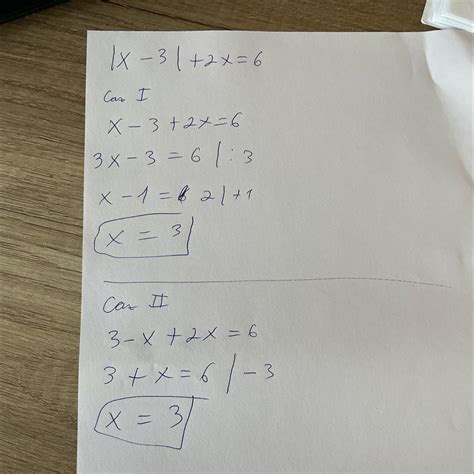 |x - 3| + 2x = 6
Case I
x - 3 + 2x = 6
3x - 3 = 6 | : 3
x - 1 = 2 | + 1
x = 3
Case II
3 - x + 2x = 6
3 + x = 6 | - 3
x = 3